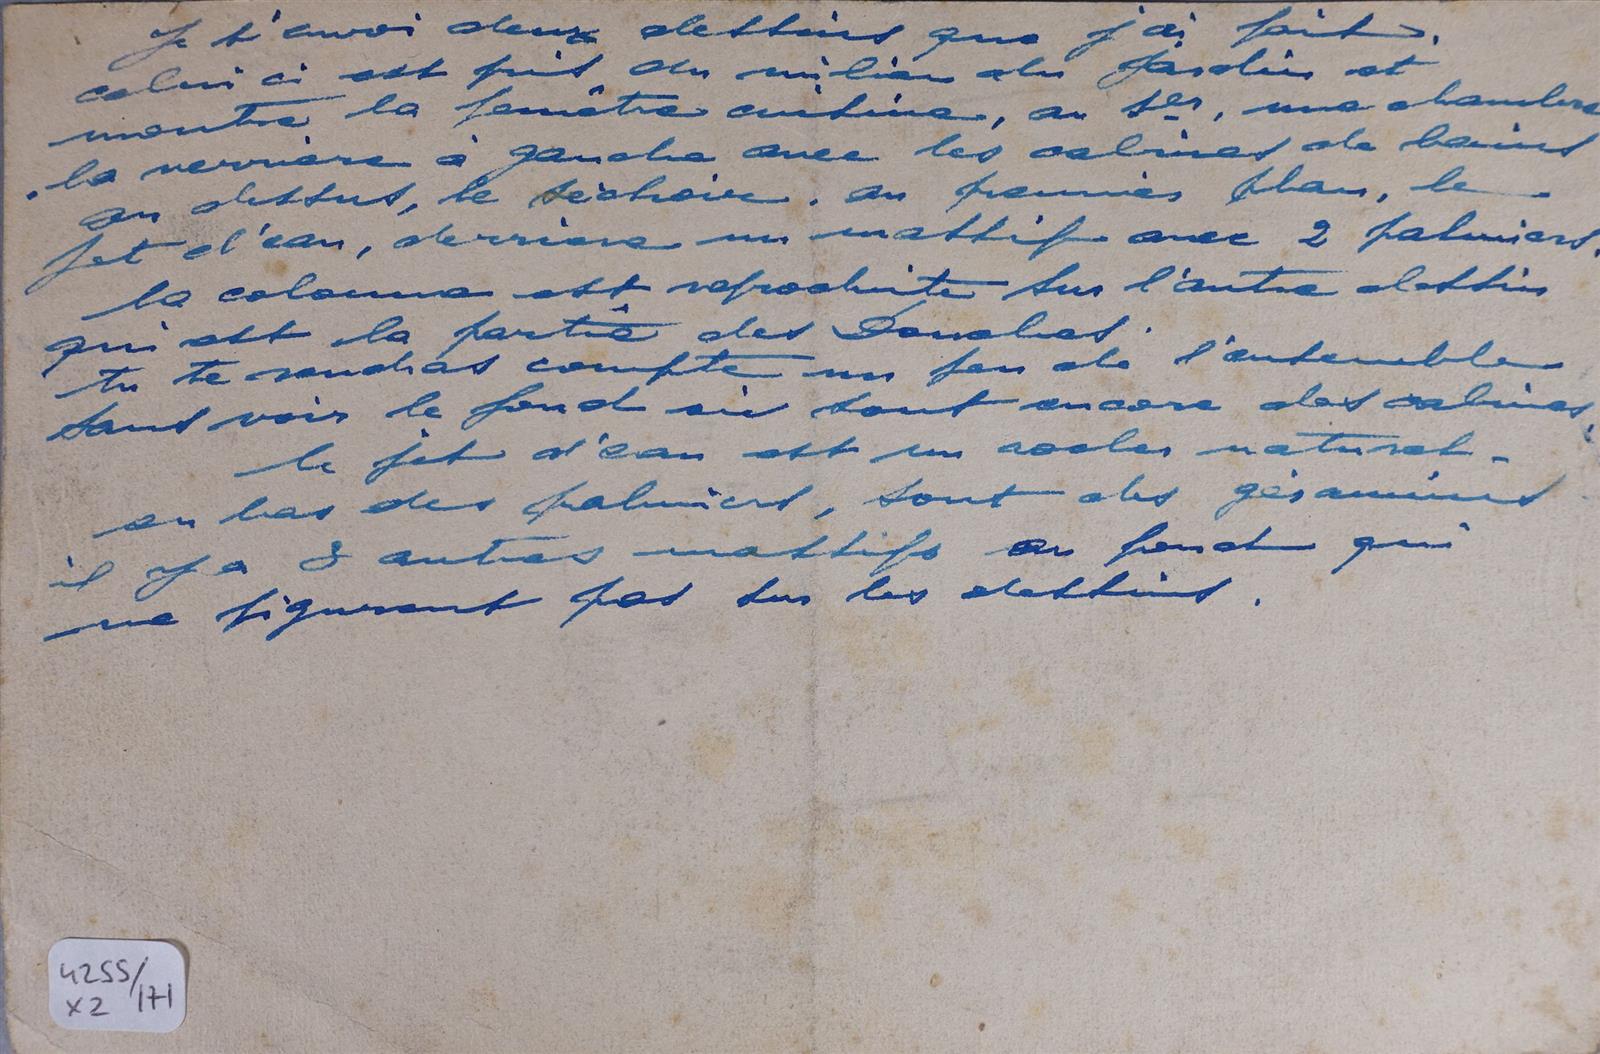 Je t'envoi deux dessins que j'ai fait.
celui ci est pris du milieu du Jardin et
montre la fenêtre cuisine, au 1er, une chambre
la verrière à gauche avec les cabines de bains
au dessus, le séchoir. au premier plan, le
jet d'eau, derriere un massif avec 2 palmiers.
la colonne est reproduite sur l'autre dessin
qui est la partie des Douches.
tu te rendras compte un peu de l'ensemble
sans voir le fond où sont encore des cabines.
le jet d'eau est un rocher naturel -
au bas des palmiers, sont des géraniums
il y a 8 autres massifs au fond qui
ne figurent pas sur les dessins.
4255/171
X2